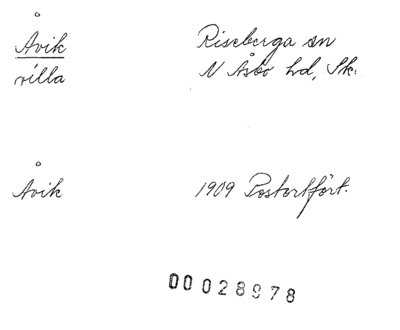 Åvik Riseberga sn
villa N Åsbo hd, Sk.
Åvik 1909 Postortfört.
00028978